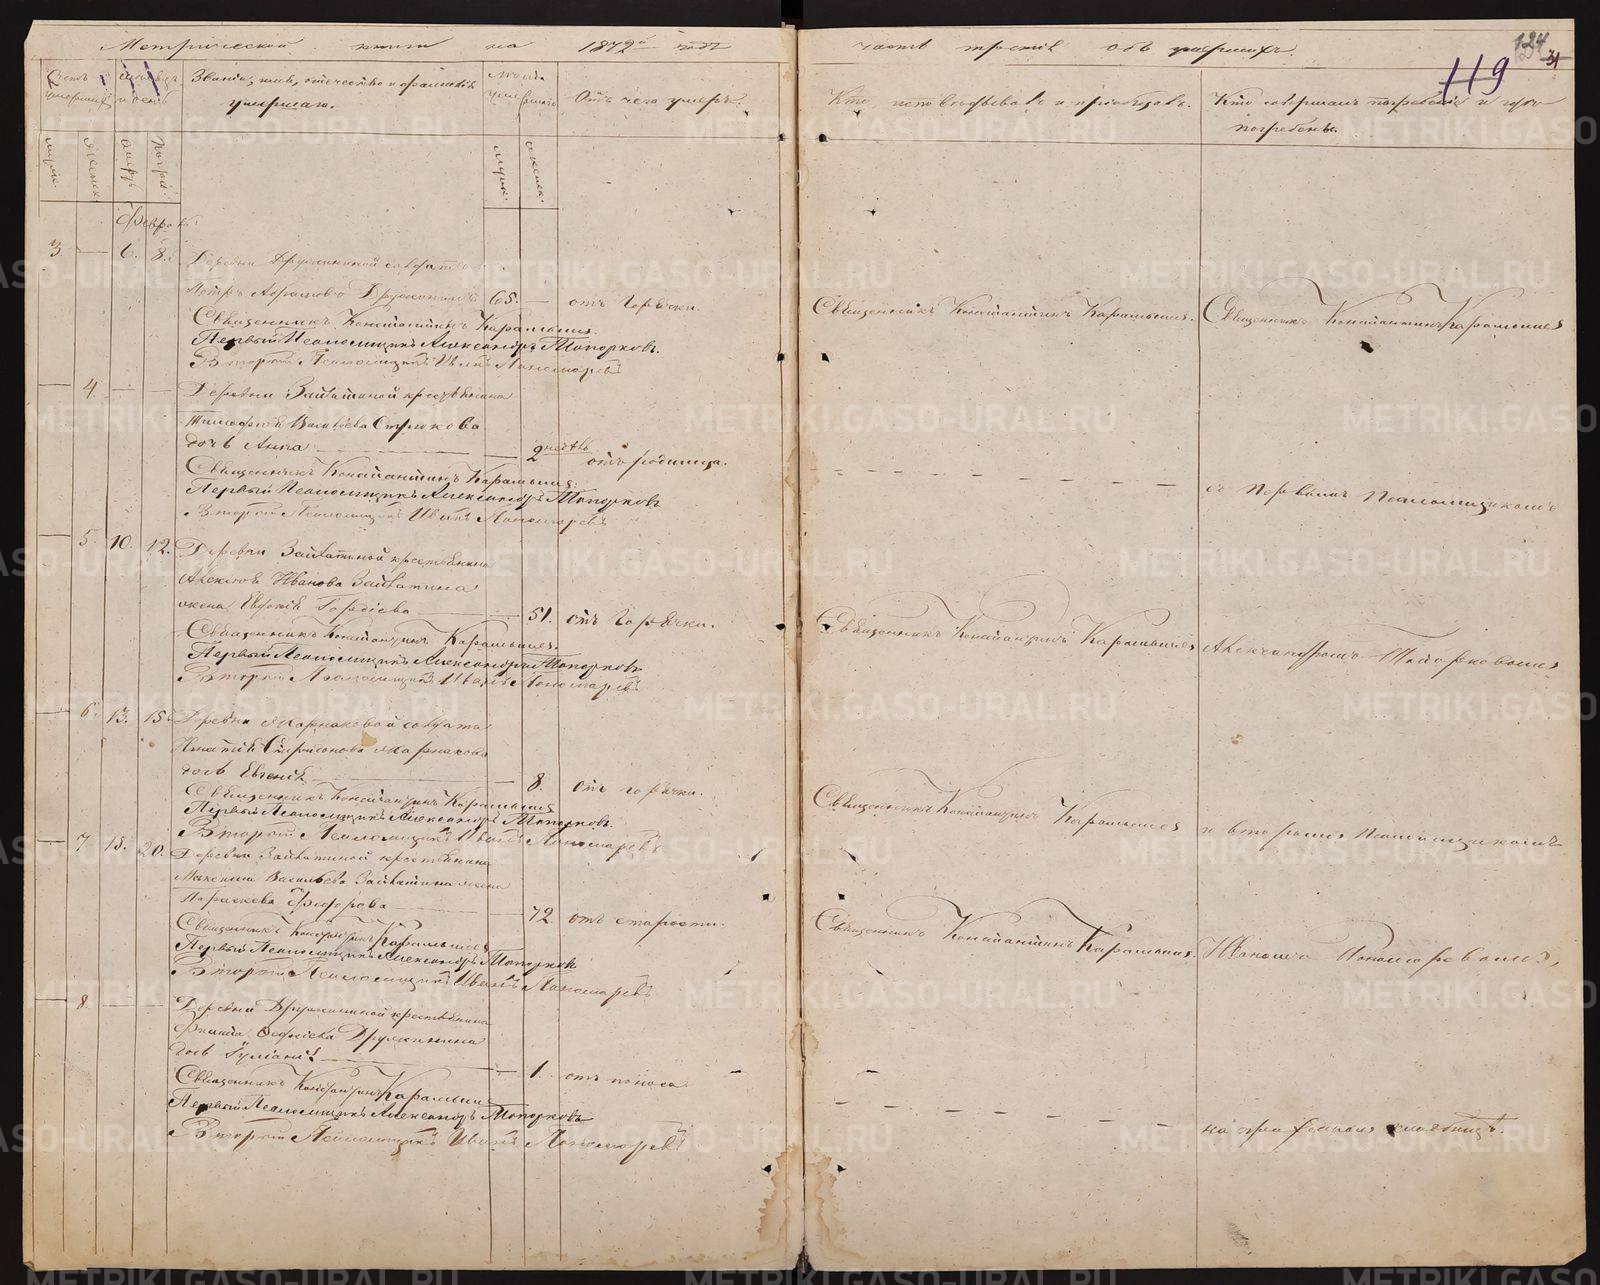 Метрической книги на 1872й годъ
часть третiя объ умершихъ.
124
119
31
Счетъ умершихъ
Мѣсяцъ и день
Званiе, имя, отчество и фамилiя умершаго.
Лѣта умершаго
Отъ чего умеръ.
Кто исповѣдывалъ и прiобщалъ.
Кто совершалъ погребенiе и гдѣ погребены.
мужск.
женск.
смерт.
погреб.
мужск.
женск.
Февраль
3. — 6. 8. Деревни Дружининой солдатъ
Петръ Абрамовъ Дружининъ 65. — отъ горячки.
Священникъ Константинъ Карамышевъ.
Священникъ Константинъ Карамышевъ
Священникъ Константинъ Карамышевъ.
Первый Псаломщикъ Александръ Топорковъ.
Второй Псаломщикъ Иванъ Пономаревъ
— 4. — — Деревни Зайкотиной крестьянина
Тимофея Васильева Стукова
дочь Анна — 2 недѣль отъ родимца.
Священникъ Константинъ Карамышевъ.
Первый Псаломщикъ Александръ Топорковъ
съ первымъ Псаломщикомъ
Второй Псаломщикъ Иванъ Пономаревъ
— 5. 10. 12. Деревни Зайкотиной крестьянина
Алексѣя Иванова Зайкотина
жена Евфимiя Гордѣева — 51. отъ горячки.
Священникъ Константинъ Карамышевъ
Александромъ Топорковымъ
Священникъ Константинъ Карамышевъ.
Первый Псаломщикъ Александръ Топорковъ
Второй Псаломщикъ Иванъ Пономаревъ
— 6. 13. 15. Деревни солдата
Игнатiя
дочь Евгенiя — 8. отъ горячки.
Священникъ Константинъ Карамышевъ
и вторымъ Псаломщикомъ
Священникъ Константинъ Карамышевъ
Первый Псаломщикъ Александръ Топорковъ.
Второй Псаломщикъ Иванъ Пономаревъ
— 7. 18. 20. Деревни Зайкотиной крестьянина
Максима Васильева Зайкотина жена
Параскева Федорова — 72. отъ старости.
Священникъ Константинъ Карамышевъ.
Иваномъ Пономаревымъ,
Священникъ Константинъ Карамышевъ
Первый Псаломщикъ Александръ Топорковъ
Второй Псаломщикъ Иванъ Пономаревъ
— 8. — — Деревни Дружининой крестьянина
Дружинина
дочь Iулiанiя — 1. отъ поноса
Священникъ Константинъ Карамышевъ
Первый Псаломщикъ Александръ Топорковъ
на приходскомъ кладбищѣ.
Второй Псаломщикъ Иванъ Пономаревъ
METRIKI.GASO-URAL.RU